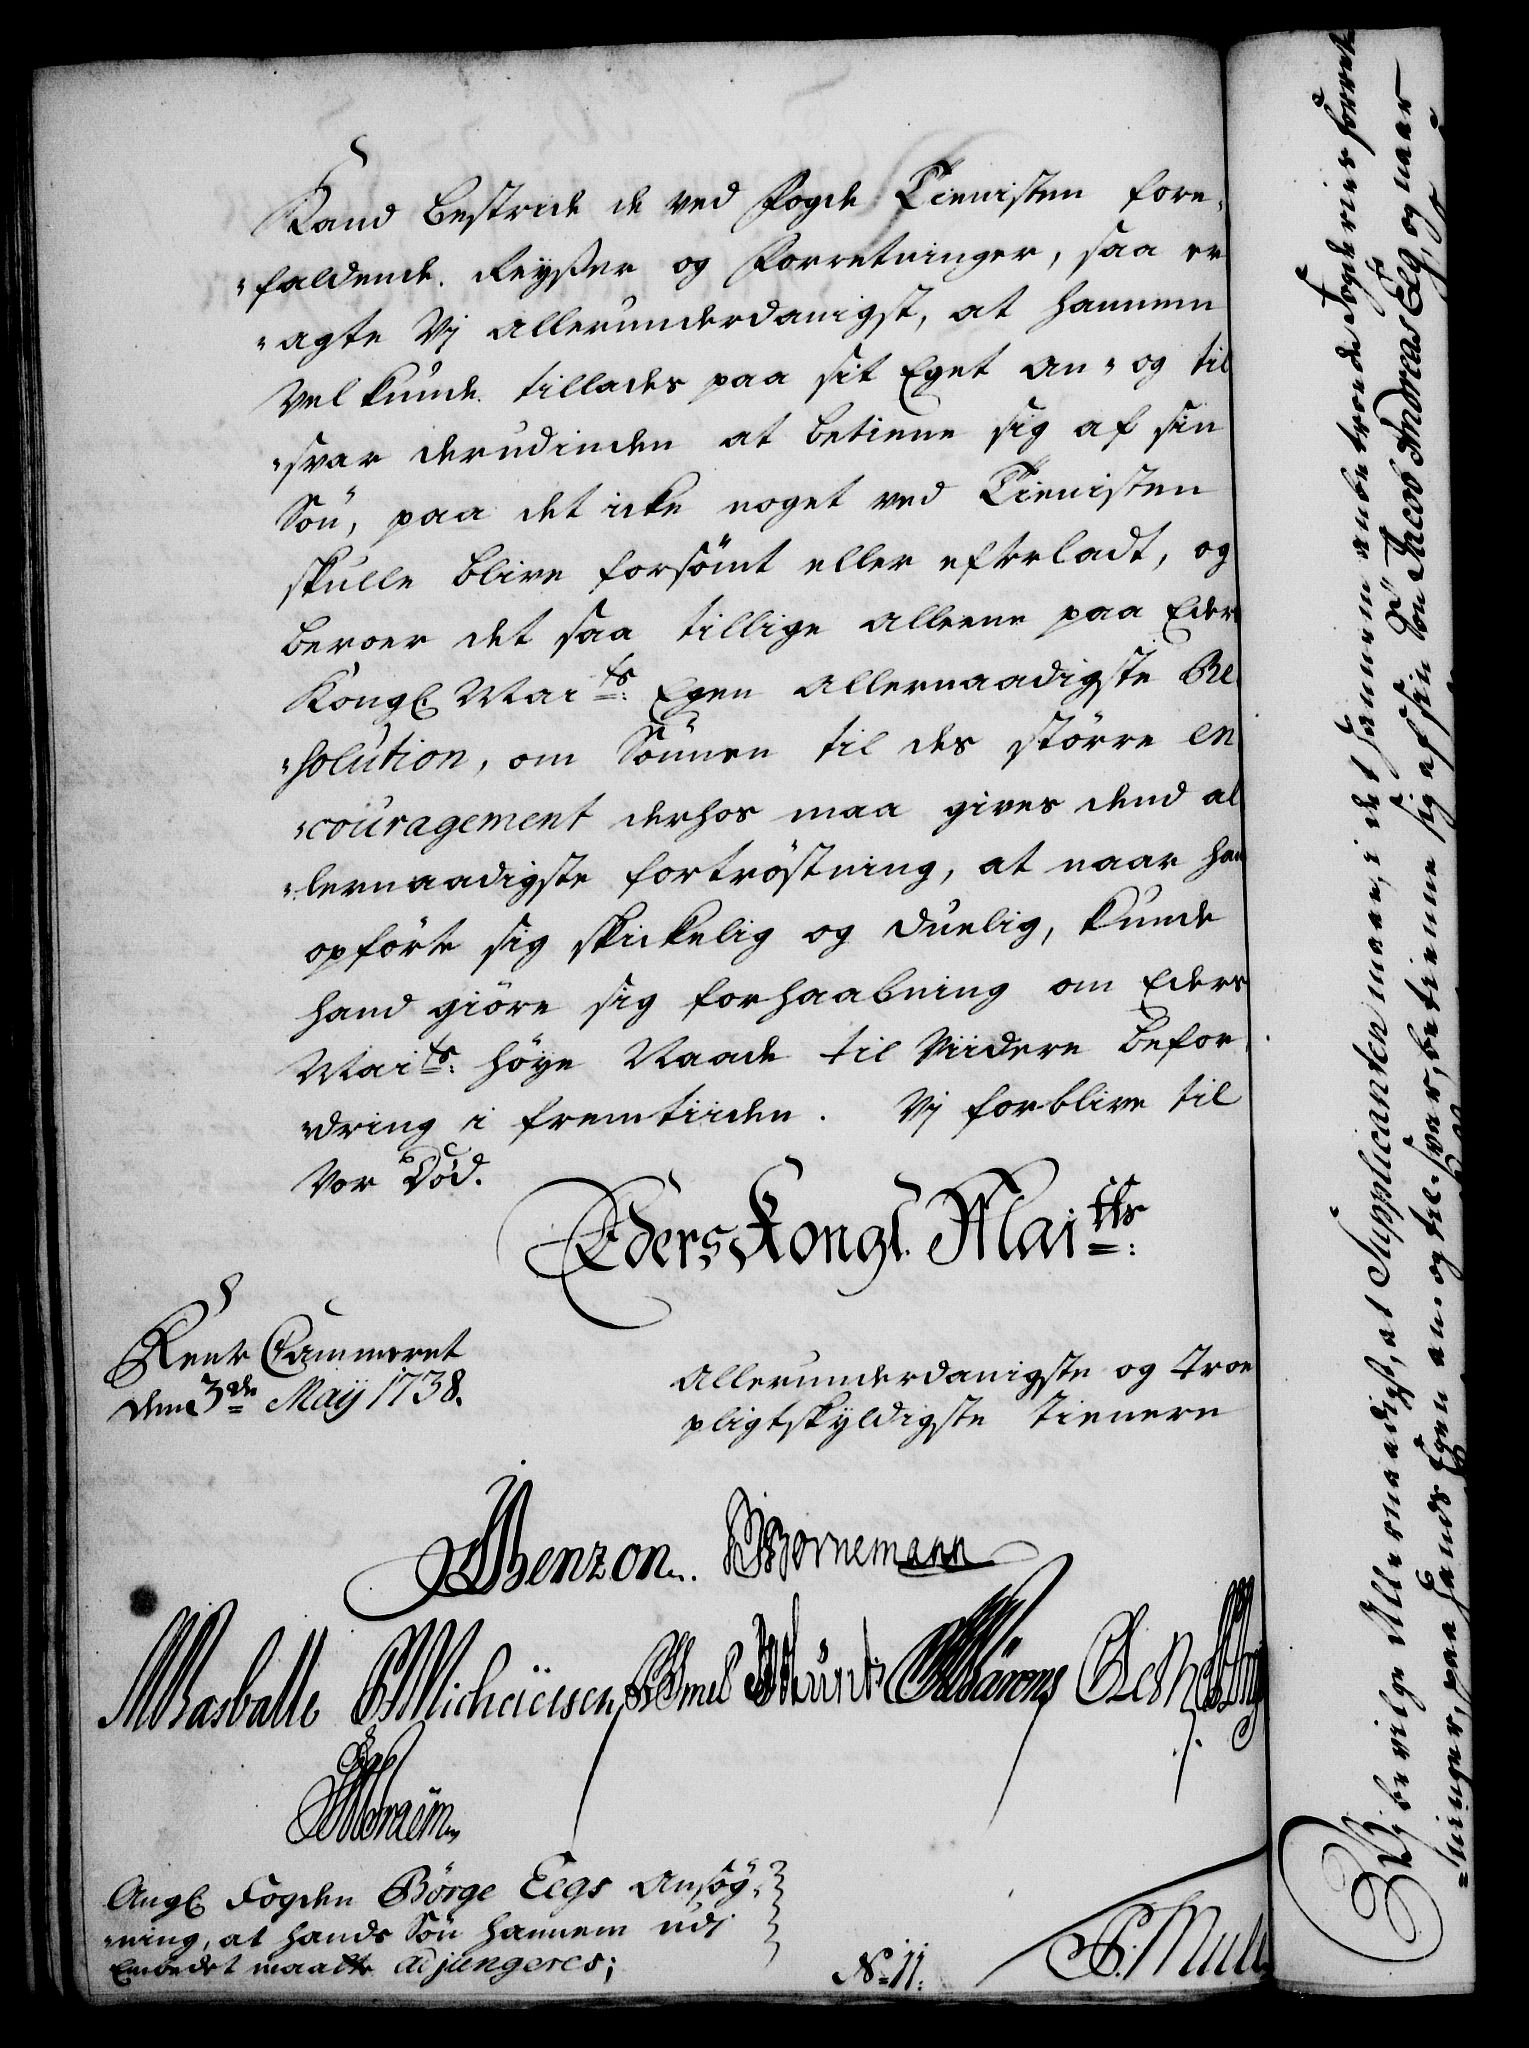 Kand bestride de ved Fogde Tienisten fore,
"faldende Reyßer og Forretninger, saa er
"agte Vj allerunderdanigst, at hannem
Vel kunde tillades paa sit Eget an- og til
"svar derudinden at betiene sig af sin
Sön, paa det icke noget ved Tienisten
skulle blive forsömt eller efterladt, og
beroer det saa tillige alleene paa Eders
Kongl. Mai ts: Egen allernaadigste Re
"solution, om Sönnen til des större en
"couragement derhos maa gives dend al
"lernaadigste fortröstning, at naar han
opförte sig skickelig og duelig, kunde
hand giöre sig forhaabning om Eders
Mai ts: höye Naade til Viidere befor
"dring i fremtiiden. Vj forblive til
Vor Död.
Eders Kongl. Mai tts:
Rente Cammeret
den 3de Maij 1738.
Allerunderdanigste og Troe
pligtskyldigste Tienere
Benzon. Bornemann
Basballe
Angl. Fogden Börge Eegs Ansög-
"ning, at hands Sön hannem udj
Embedet maatte adjungeres;
No 11.
Vj bevilge Allernaadigst, at Supplicanten maae, i det hannem anbetroede Fogderies Forret
"ninger, paa hands Egen an- og til-svar, betienne sig af sin Sön Jacob Andreas Eeg, og naar